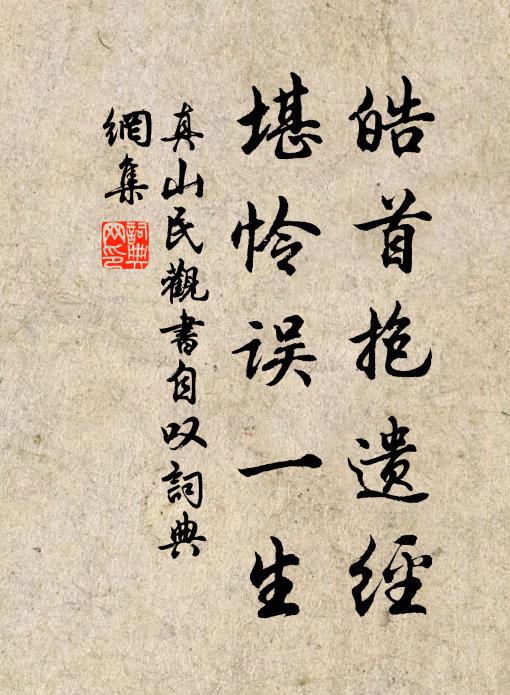 皓首抱遗经
堪怜误一生
真山民觀書自叹詞典
網集
詞典网印